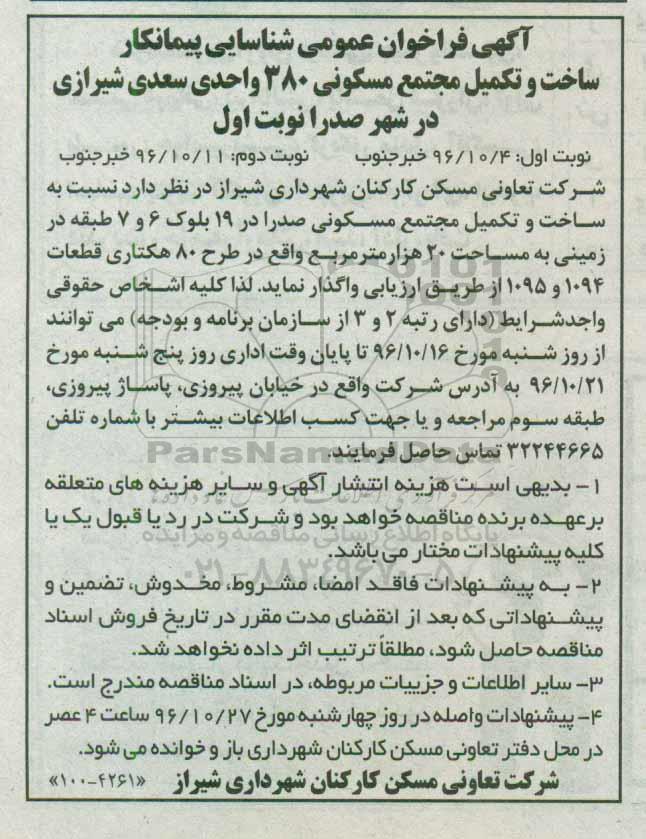 آگهی فراخوان عمومی شناسایی پیمانکار
ساخت و تکمیل مجتمع مسکونی ۳۸۰ واحدی سعدی شیرازی
در شهر صدرا نوبت اول
نوبت اول: ۹۶/۱۰/۴ خبرجنوب نوبت دوم: ۹۶/۱۰/۱۱ خبرجنوب
شرکت تعاونی مسکن کارکنان شهرداری شیراز در نظر دارد نسبت به
ساخت و تکمیل مجتمع مسکونی صدرا در ۱۹ بلوک ۶ و ۷ طبقه در
زمینی به مساحت ۲۰ هزارمترمربع واقع در طرح ۸۰ هکتاری قطعات
۱۰۹۴ و ۱۰۹۵ از طریق ارزیابی واگذار نماید. لذا کلیه اشخاص حقوقی
واجدشرایط (دارای رتبه ۲ و ۳ از سازمان برنامه و بودجه) می توانند
از روز شنبه مورخ ۹۶/۱۰/۱۶ تا پایان وقت اداری روز پنج شنبه مورخ
۹۶/۱۰/۲۱ به آدرس شرکت واقع در خیابان پیروزی، پاساژ پیروزی،
طبقه سوم مراجعه و یا جهت کسب اطلاعات بیشتر با شماره تلفن
۳۲۲۴۴۶۶۵ تماس حاصل فرمایند.
ParsNamadData
۱- بدیهی است هزینه انتشار آگهی و سایر هزینه های متعلقه
برعهده برنده مناقصه خواهد بود و شرکت در رد یا قبول یک یا
پایگاه اطلاع رسانی مناقصه و مزایده
کلیه پیشنهادات مختار می باشد.
۰۲۱-۸۸۳۴۹۶۷۰-۵
۲- به پیشنهادات فاقد امضا، مشروط، مخدوش، تضمین و
پیشنهاداتی که بعد از انقضای مدت مقرر در تاریخ فروش اسناد
مناقصه حاصل شود، مطلقاً ترتیب اثر داده نخواهد شد.
۳- سایر اطلاعات و جزییات مربوطه، در اسناد مناقصه مندرج است.
۴- پیشنهادات واصله در روز چهارشنبه مورخ ۹۶/۱۰/۲۷ ساعت ۴ عصر
در محل دفتر تعاونی مسکن کارکنان شهرداری باز و خوانده می شود.
شرکت تعاونی مسکن کارکنان شهرداری شیراز «۱۰۰-۴۲۶۱»